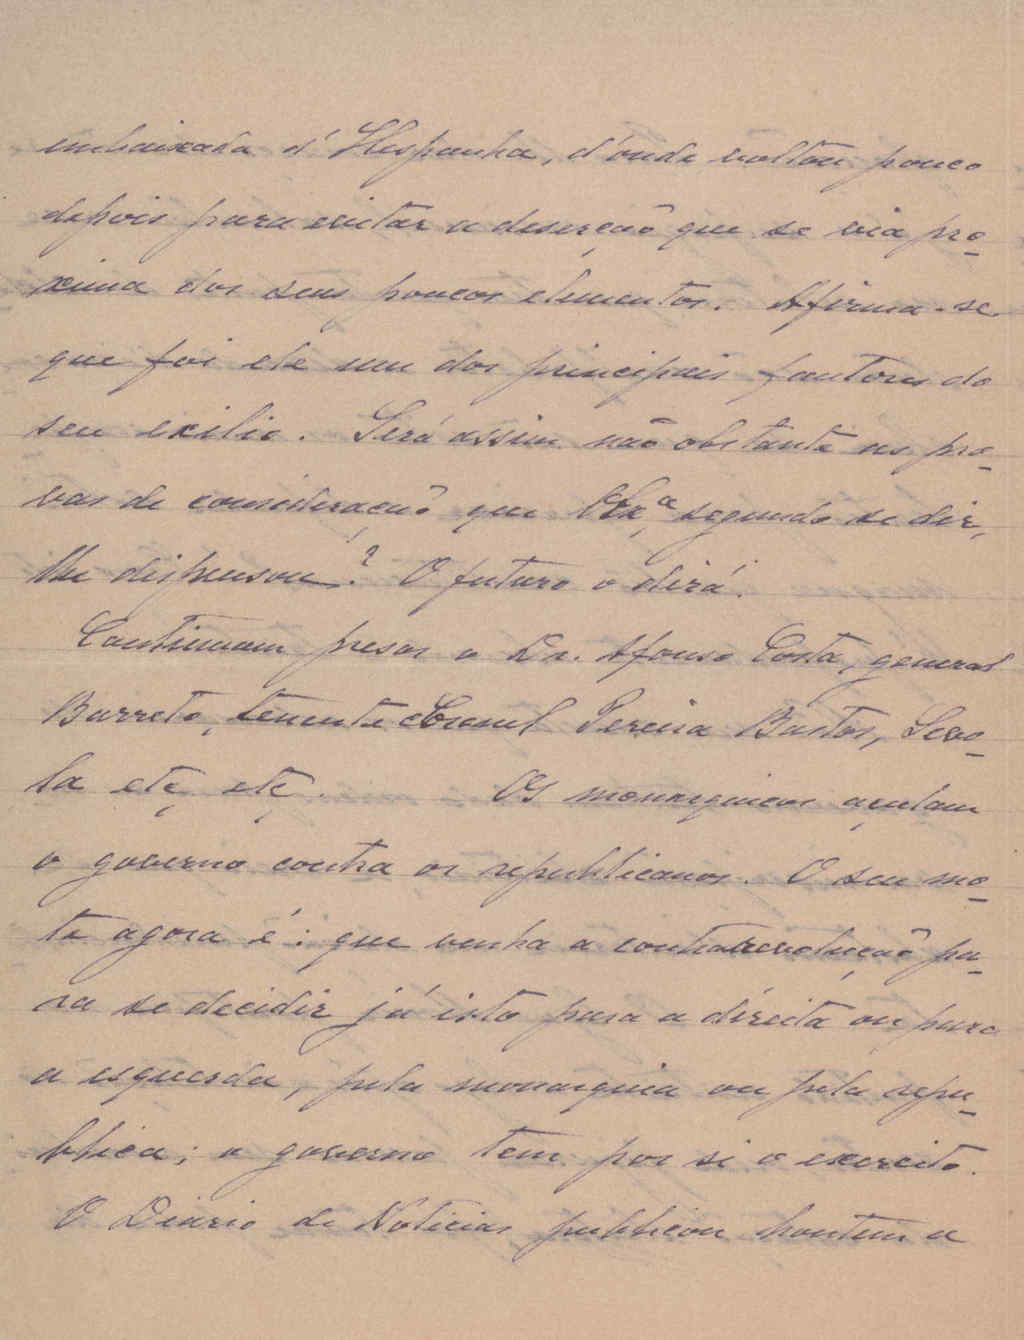 embaixada d'Hespanha, d'onde voltou pouco
depois para evitar a deserção que se via pro-
xima dos seus poucos elementos. Afirma-se
que foi ele um dos principais fautores do
seu exilio. Será assim não obstante as pro-
vas de consideração que V. Ex.ª, segundo se diz,
lhe dispensou? O futuro o dirá.
Continuam presos o Dr. Afonso Costa, general
Barreto, tenente coronel Pereira Bastos, Scevo-
la etc, etc. Os monarquicos açulam
o governo contra os republicanos. O seu mo-
te agora é: que venha a contrarevolução pa-
ra se decidir já isto para a direita ou para
a esquerda, pela monarquia ou pela repu-
blica; o governo tem por si o exercito.
O Diario de Noticias publicou hontem a